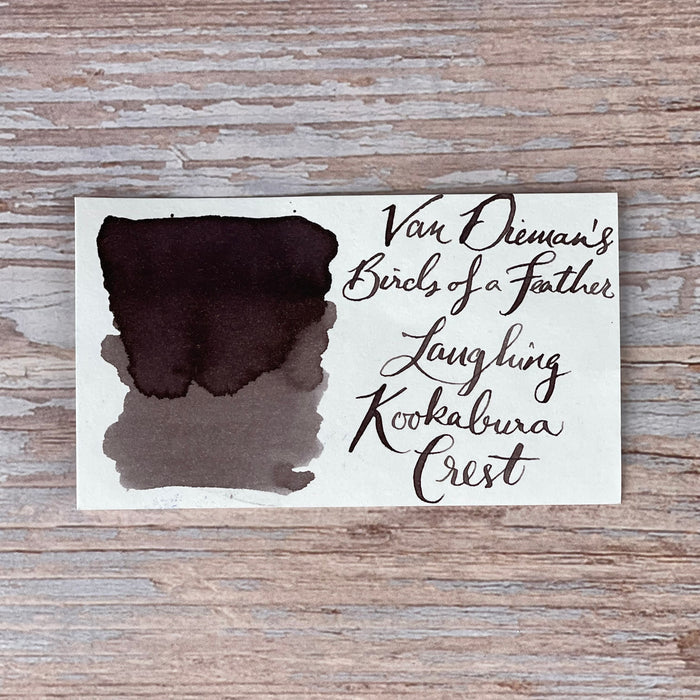 Van Dieman's
Birds of a Feather
Laughing
Kookabura
Crest